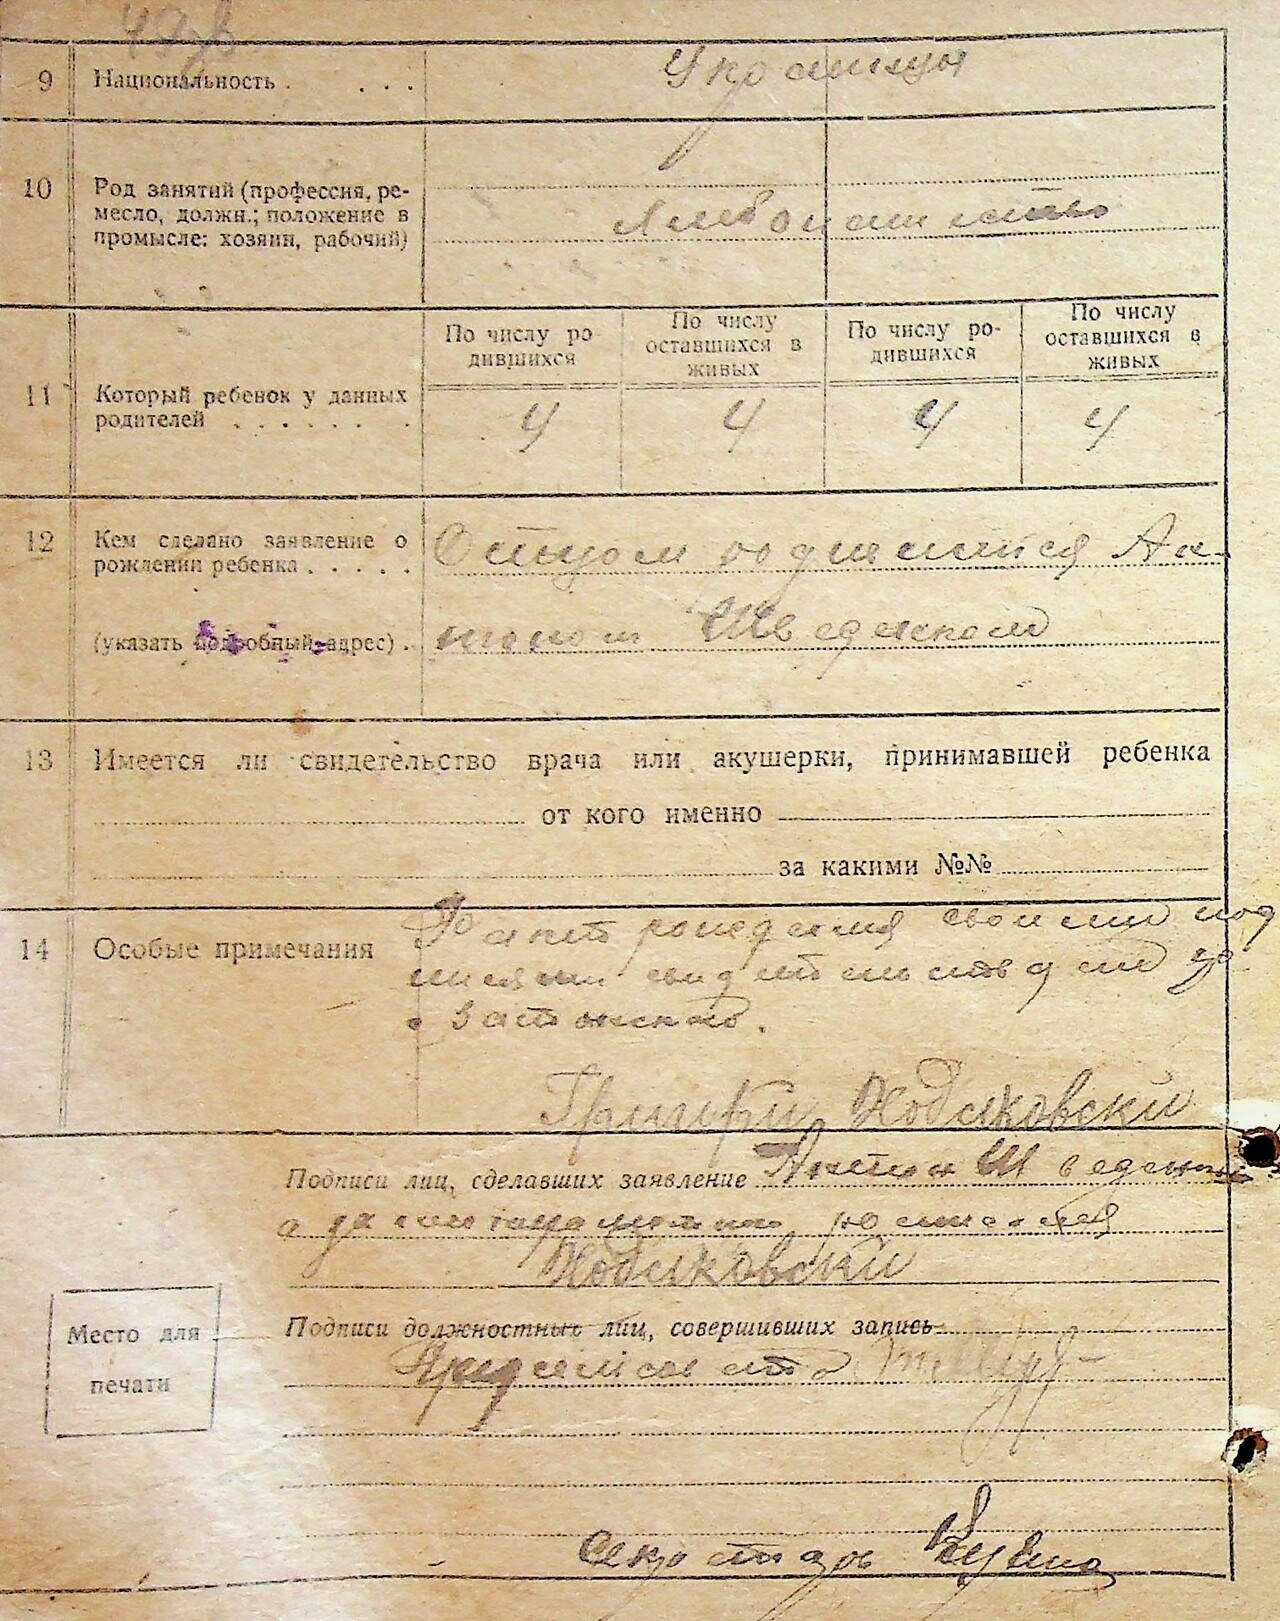 9 Национальность . . . . Украинцы
10 Род занятий (профессия, ре-
месло, должн.; положение в
промысле: хозяин, рабочий)
Хлебопашество
11 Который ребенок у данных
родителей . . . . . . .
По числу ро
дившихся
По числу
оставшихся в
живых
По числу ро-
дившихся
По числу
оставшихся в
живых
4 4 4 4
12 Кем сделано заявление о
рождении ребенка . . . . .
(указать подробный адрес) .
Отцом родившейся Ан-
тоном Шведенском
13 Имеется ли свидетельство врача или акушерки, принимавшей ребенка
от кого именно
за какими №№
14 Особые примечания
Факт рождения своими под
писями
Григори
Подписи лиц, сделавших заявление Антон Шведенски
а за
Место для
печати
Подписи должностных лиц, совершивших запись
Пред
Секретарь